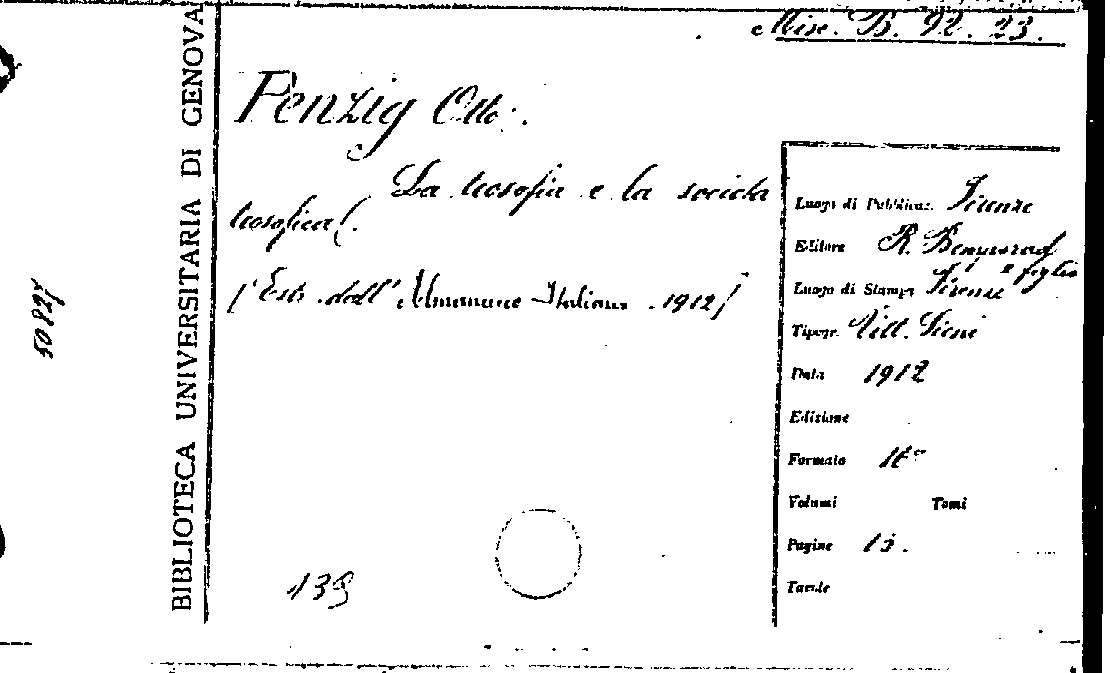 Misc. B. 92. 23.
BIBLIOTECA UNIVERSITARIA DI GENOVA
Penzig Otto.
La teosofia e la società
teosofica.
[Estr. dall' Almanacco Italiano 1912]
139
50872
Luogo di Pubblicaz. Firenze
Editore R. Bemporad
e figlio
Luogo di Stampa Firenze
Tipogr. Vitt. Sieni
Data 1912
Edizione
Formato 16°
Volumi Tomi
Pagine 15.
Tavole